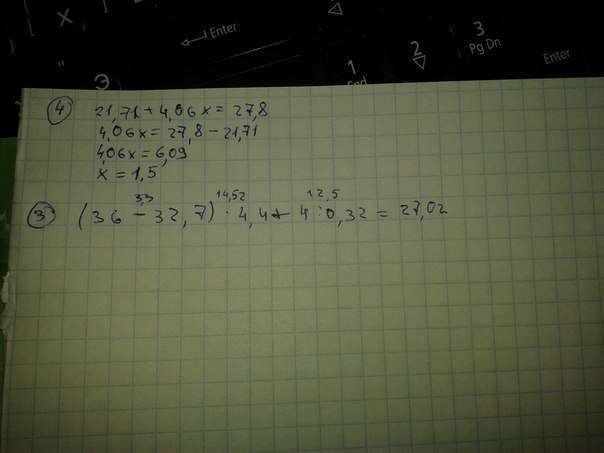 Х
Enter
"
Э
1
End
2
3
Pg Dn
Enter
4 21,71 + 4,06x = 27,8
4,06x = 27,8 - 21,71
4,06x = 6,09
x = 1,5
3,3 14,52 12,5
3 (36 - 32,7) · 4,4 + 4 : 0,32 = 27,02